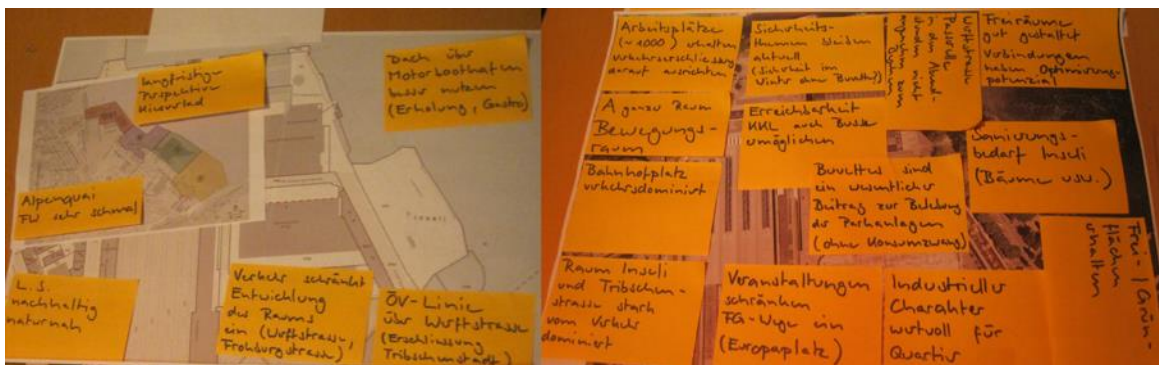 langfristige
Perspektive
Dach über
Motorboothafen
besser nutzen
(Erholung, Gastro)
Alpenquai
FW sehr schmal
L.S.
nachhaltig
naturnah
Verkehr schränkt
Entwicklung
des Raums
ein (Werftstrasse,
Frohburgstrasse)
ÖV-Linie
über Werftstrasse
(Erschliessung
Tribschenstadt)
Arbeitsplätze
(~1000) erhalten
Verkehrserschliessung
darauf ausrichten
Sicherheits-
themen bleiben
aktuell
(Sicherheit im
Winter ohne Buvette?)
Werftstrasse
Passerelle
in den Abend-
stunden nicht
angenehm zum
Begehen
Freiräume
gut gestaltet
Verbindungen
haben Optimierungs-
potenzial
A ganzer Raum
Bewegungs-
raum
Erreichbarkeit
KKL auch Busse
ermöglichen
Sanierungs-
bedarf Inseli
(Bäume usw.)
Bahnhofplatz
verkehrsdominiert
Buvettes sind
ein wesentlicher
Beitrag zur Belebung
der Parkanlagen
(ohne Konsumzwang)
Frei-/Grün-
flächen
erhalten
Raum Inseli
und Tribschen-
strasse stark
vom Verkehr
dominiert
Veranstaltungen
schränken
FG-Wege ein
(Europaplatz)
Industrieller
Charakter
wertvoll für
Quartier